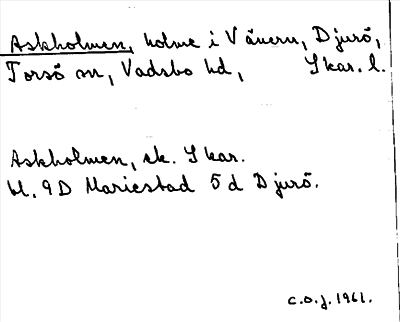 Askholmen, holme i Vänern, Djurö,
Torsö sn, Vadsbo hd, Skar. l.
Askholmen, ek. Skar.
bl. 9D Mariestad 5d Djurö.
C.O.J. 1961.